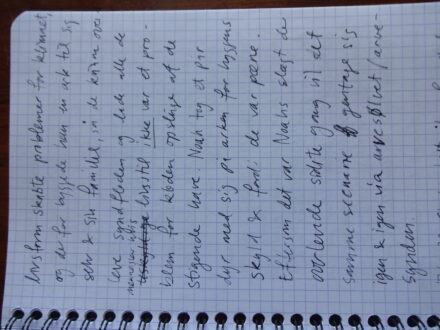 livsform skabte problemer for klimaet,
og derfor byggede han en ark til sig
selv & sin familie, så de kunne over
leve syndfloden og lede alle de
livsstil ikke var et pro-
blem for kloden opslugt af de
stigende have. Noah tog et par
dyr med sig på arken for hyggens
skyld & fordi de var pæne.
Eftersom det var Noahs slægt de
overlevede sidste gang vil det
samme scenarie gentage sig
igen & igen via arvesølvet / arve-
synden.